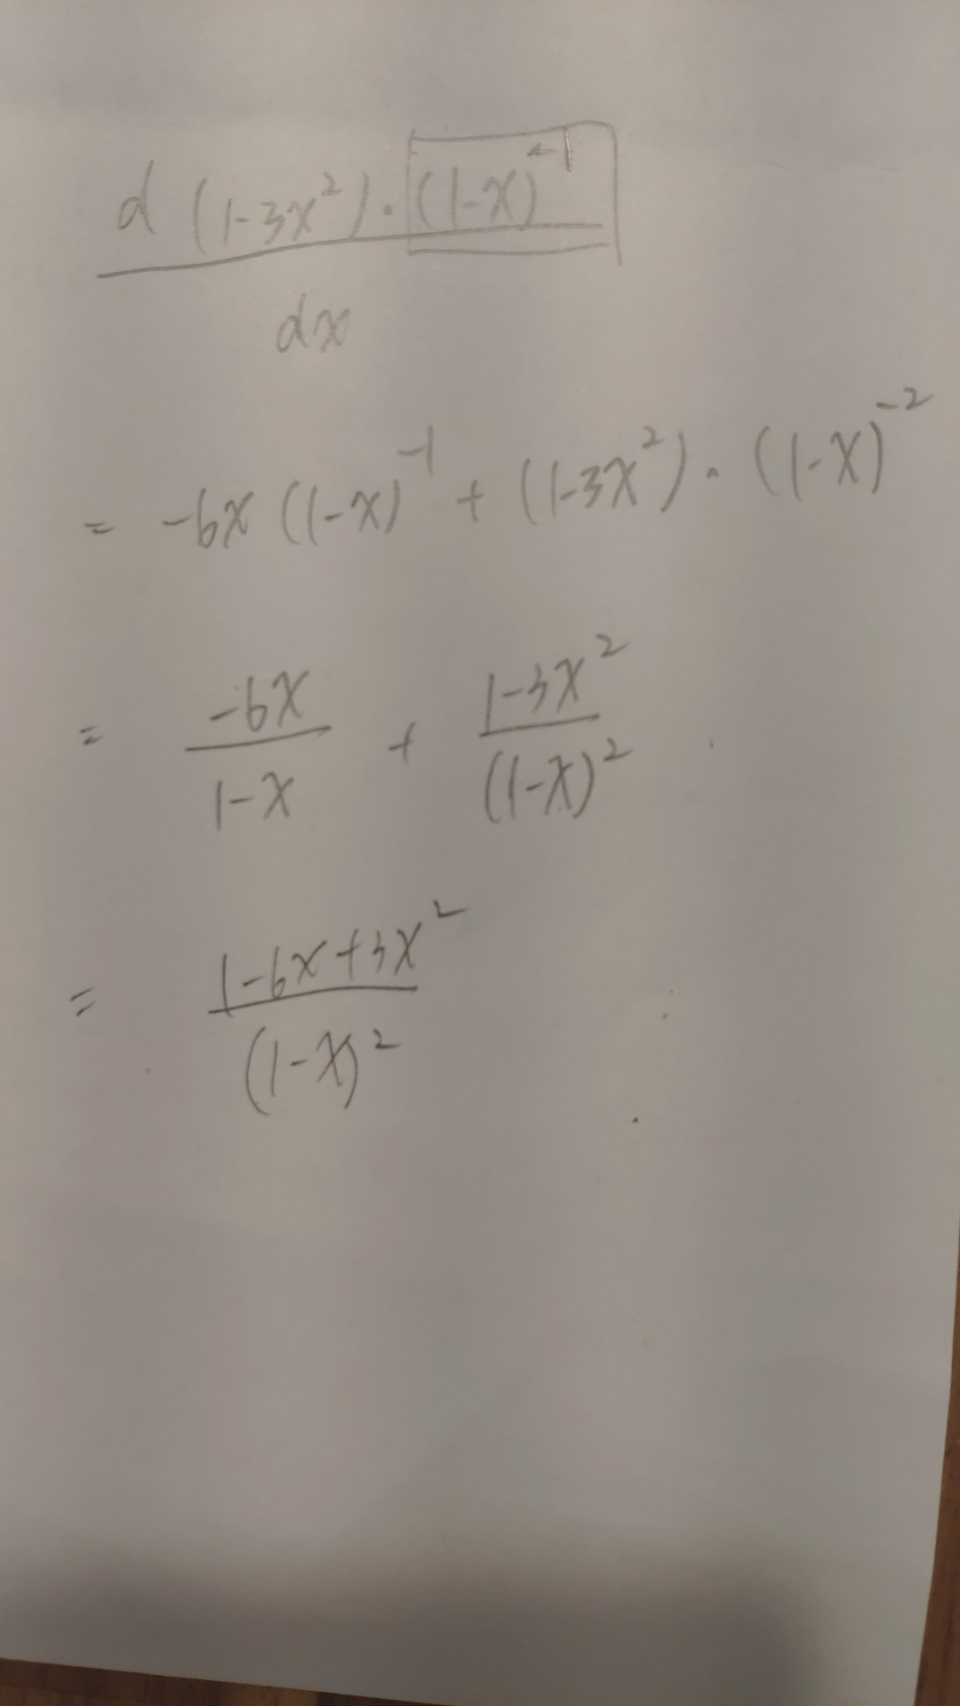 d (1-3x²)·(1-x)⁻¹
dx
= -6x (1-x)⁻¹ + (1-3x²)·(1-x)⁻²
= -6x/1-x + 1-3x²/(1-x)²
= 1-6x+3x²/(1-x)²